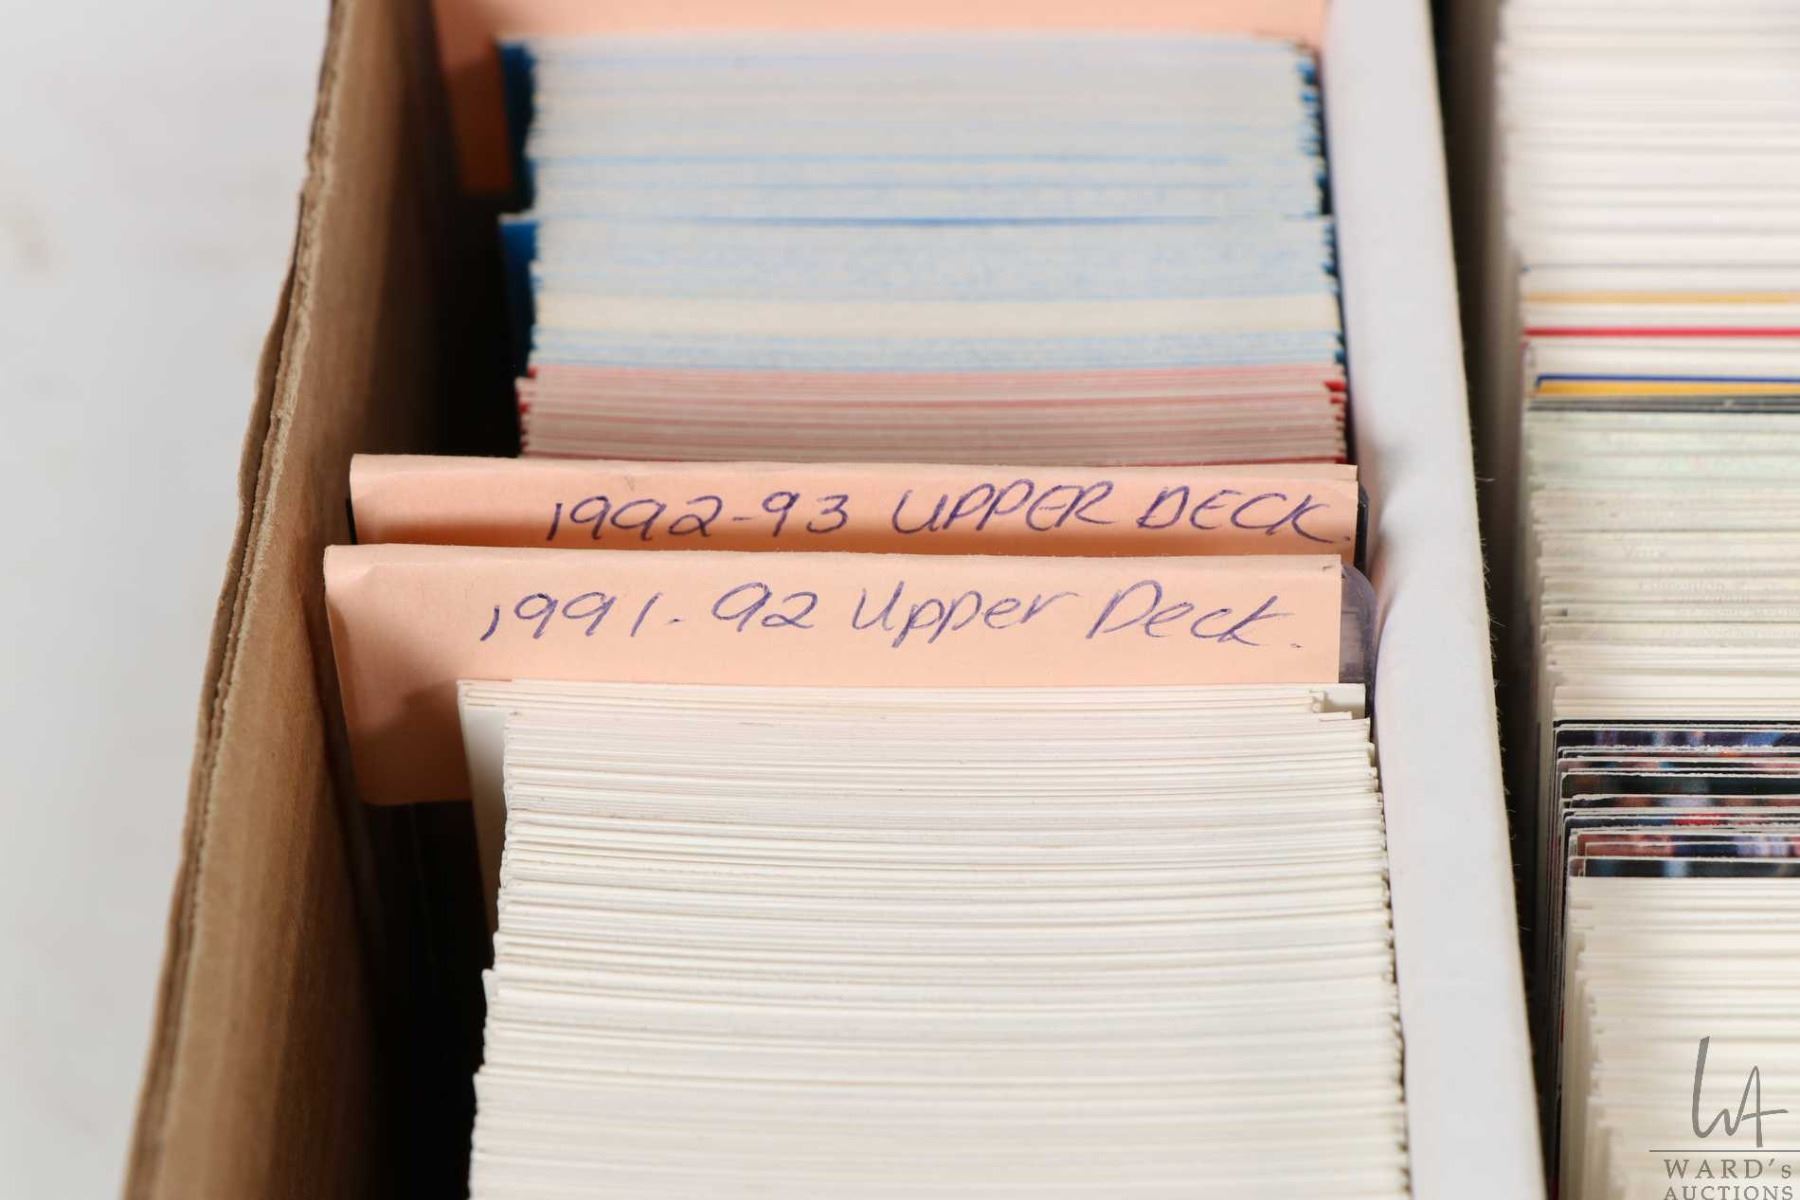 1992-93 UPPER DECK.
1991-92 Upper Deck.
WA
WARD's
AUCTIONS